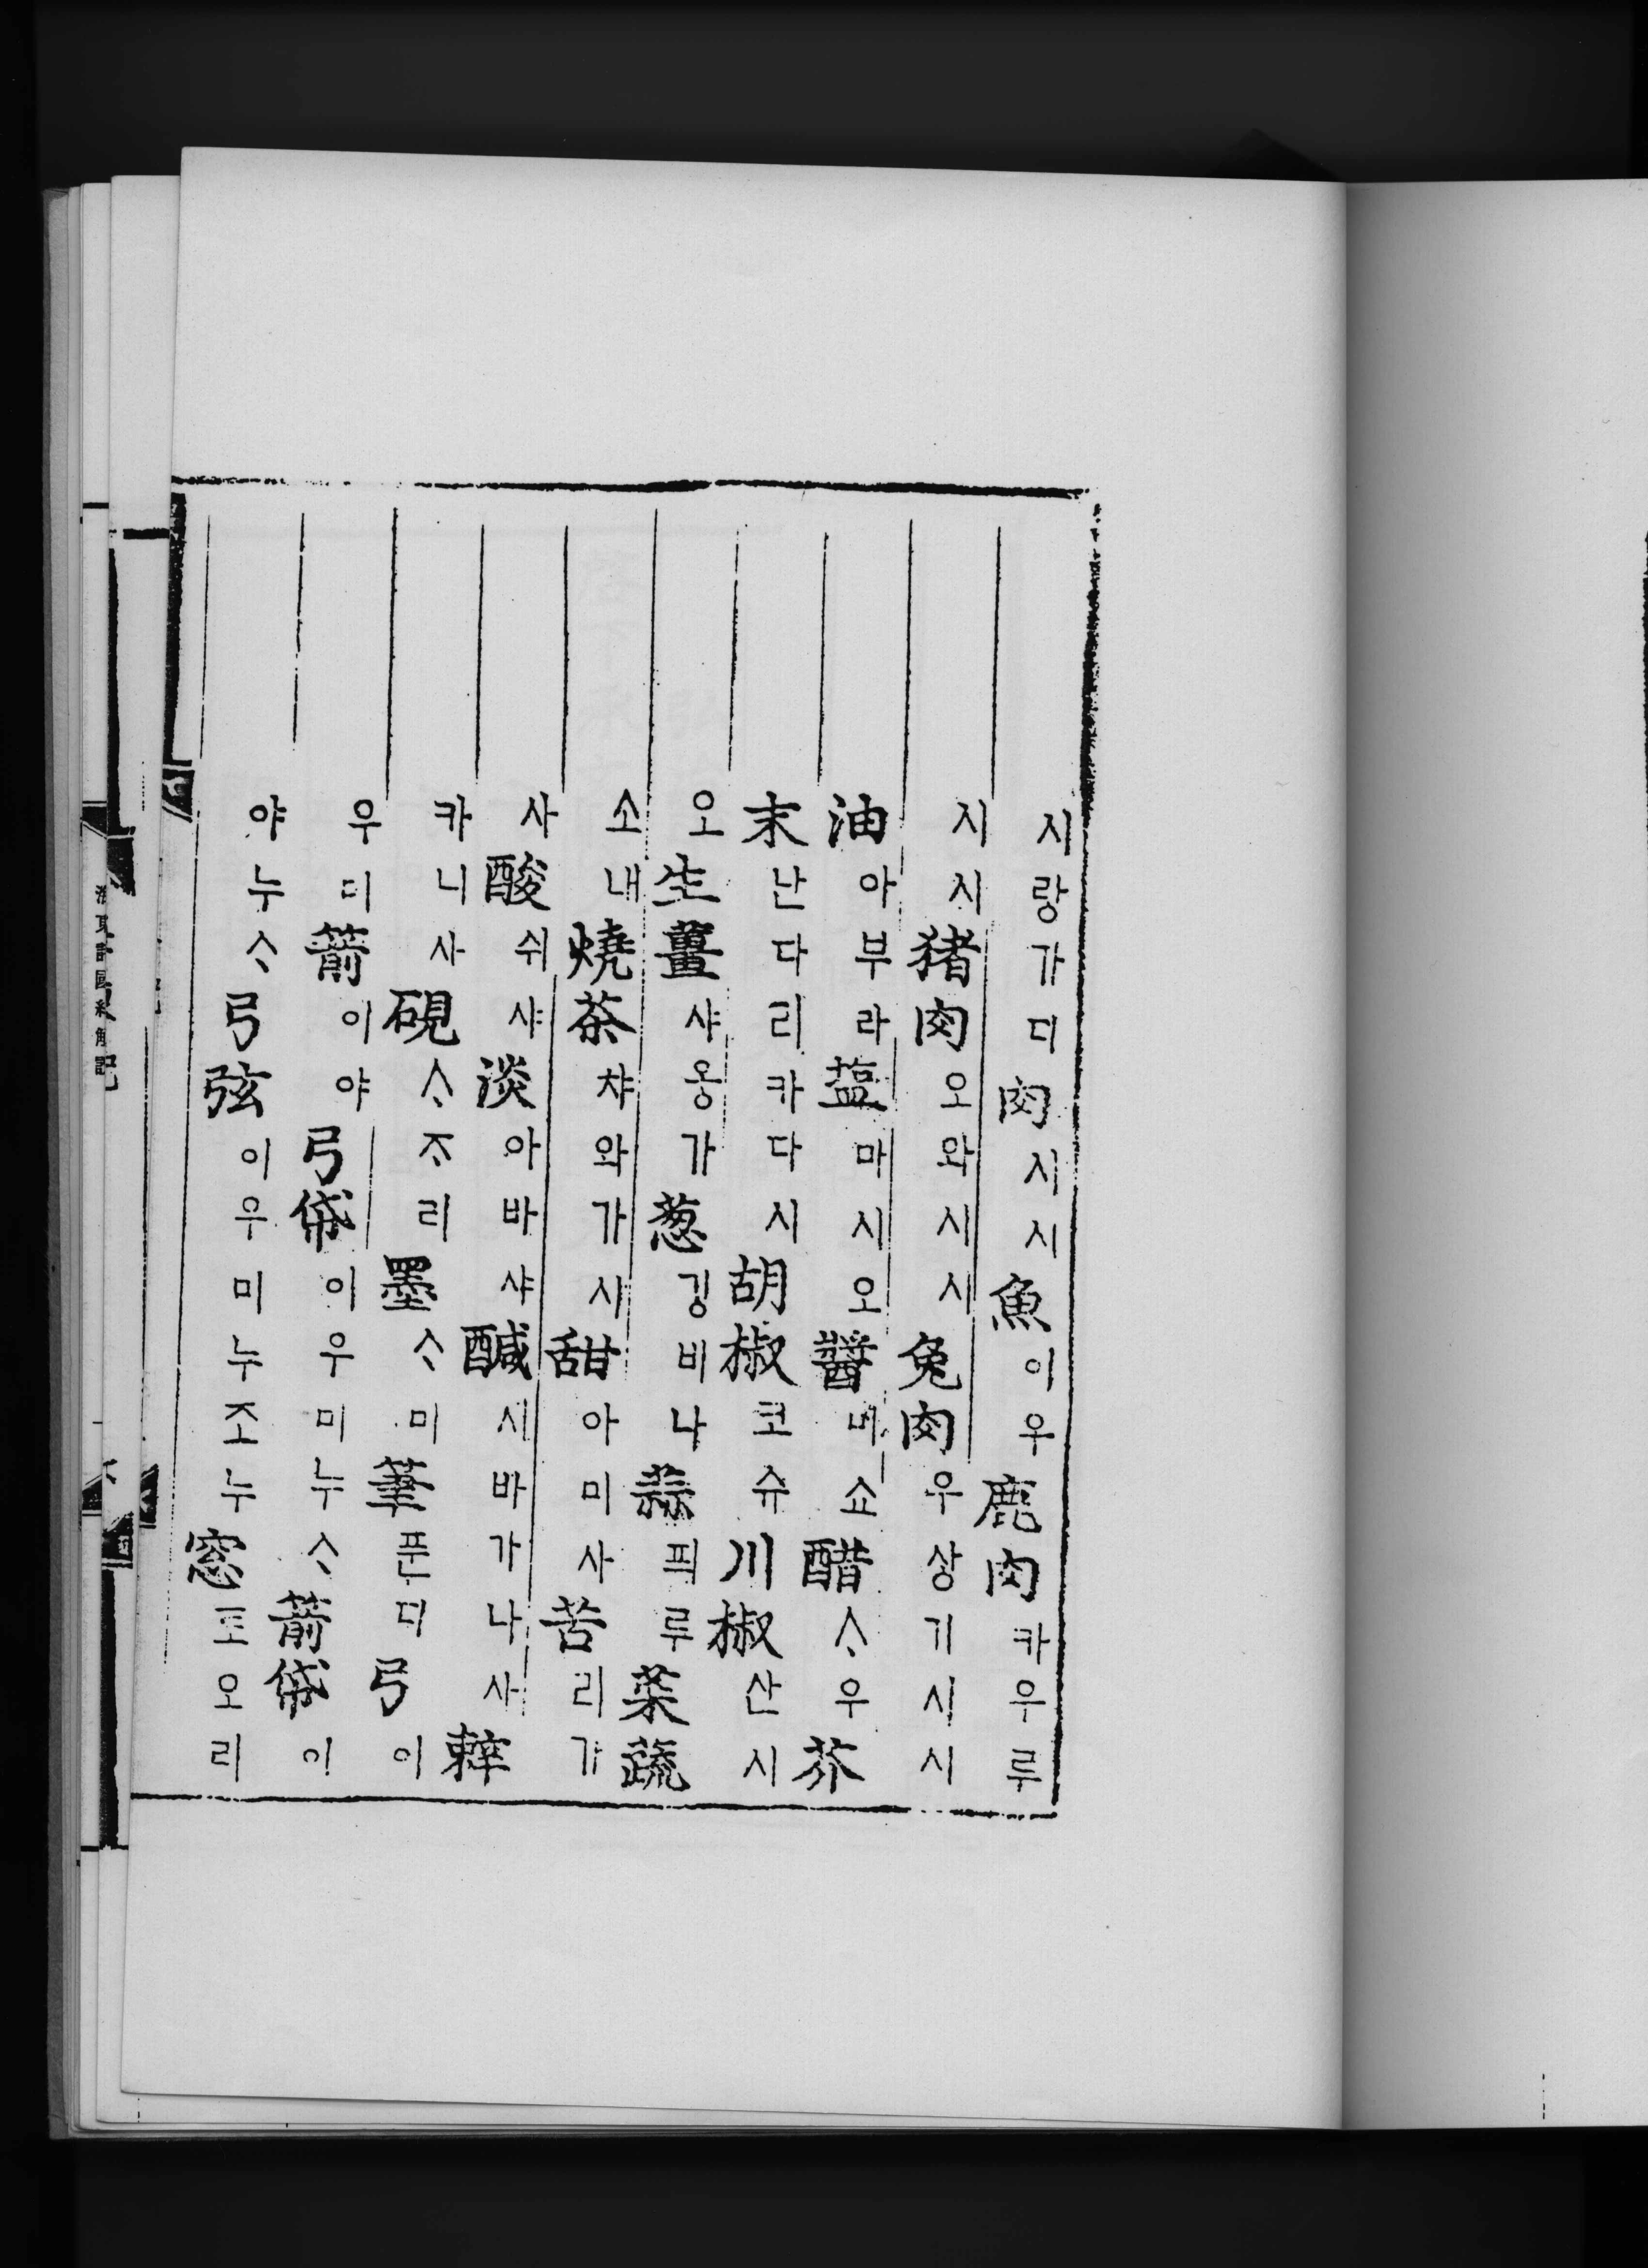 시랑가디肉시시魚이우鹿肉카우루
시시猪肉오와시시兔肉우상기시시
油아부라塩마시오醬미쇼醋ᄉᆞ우芥
末난다리카다시胡椒코슈川椒산시
오生薑샤옹가葱깅비나蒜픠루菜蔬
소내燒茶챠와가시甜아미사苦리가
사酸쉬샤淡아바샤醎시바가나사辢
카니사硯ᄉᆞᄌᆞ리墨ᄉᆞ미筆푼디弓이
우디箭이야弓帒이우미누ᄉᆞ箭帒이
야누ᄉᆞ弓弦이우미누조누窓도오리